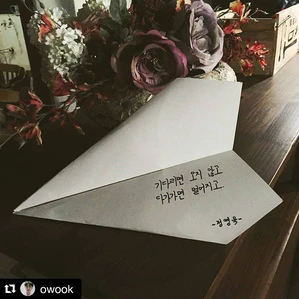 기다리면 오지 않고
다가가면 멀어지고
-정영욱-
owook